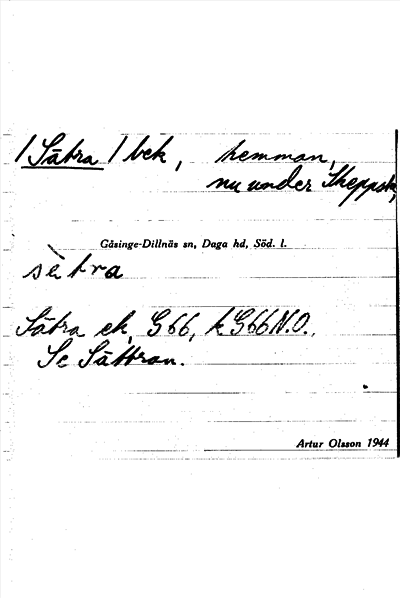 / Sätra / bek, hemman,
nu under Skeppsta,
Gåsinge-Dillnäs sn, Daga hd, Söd. l.
sètra
Sätra ek G66, k G66 N.O.,
Se Sättran.
Artur Olsson 1944